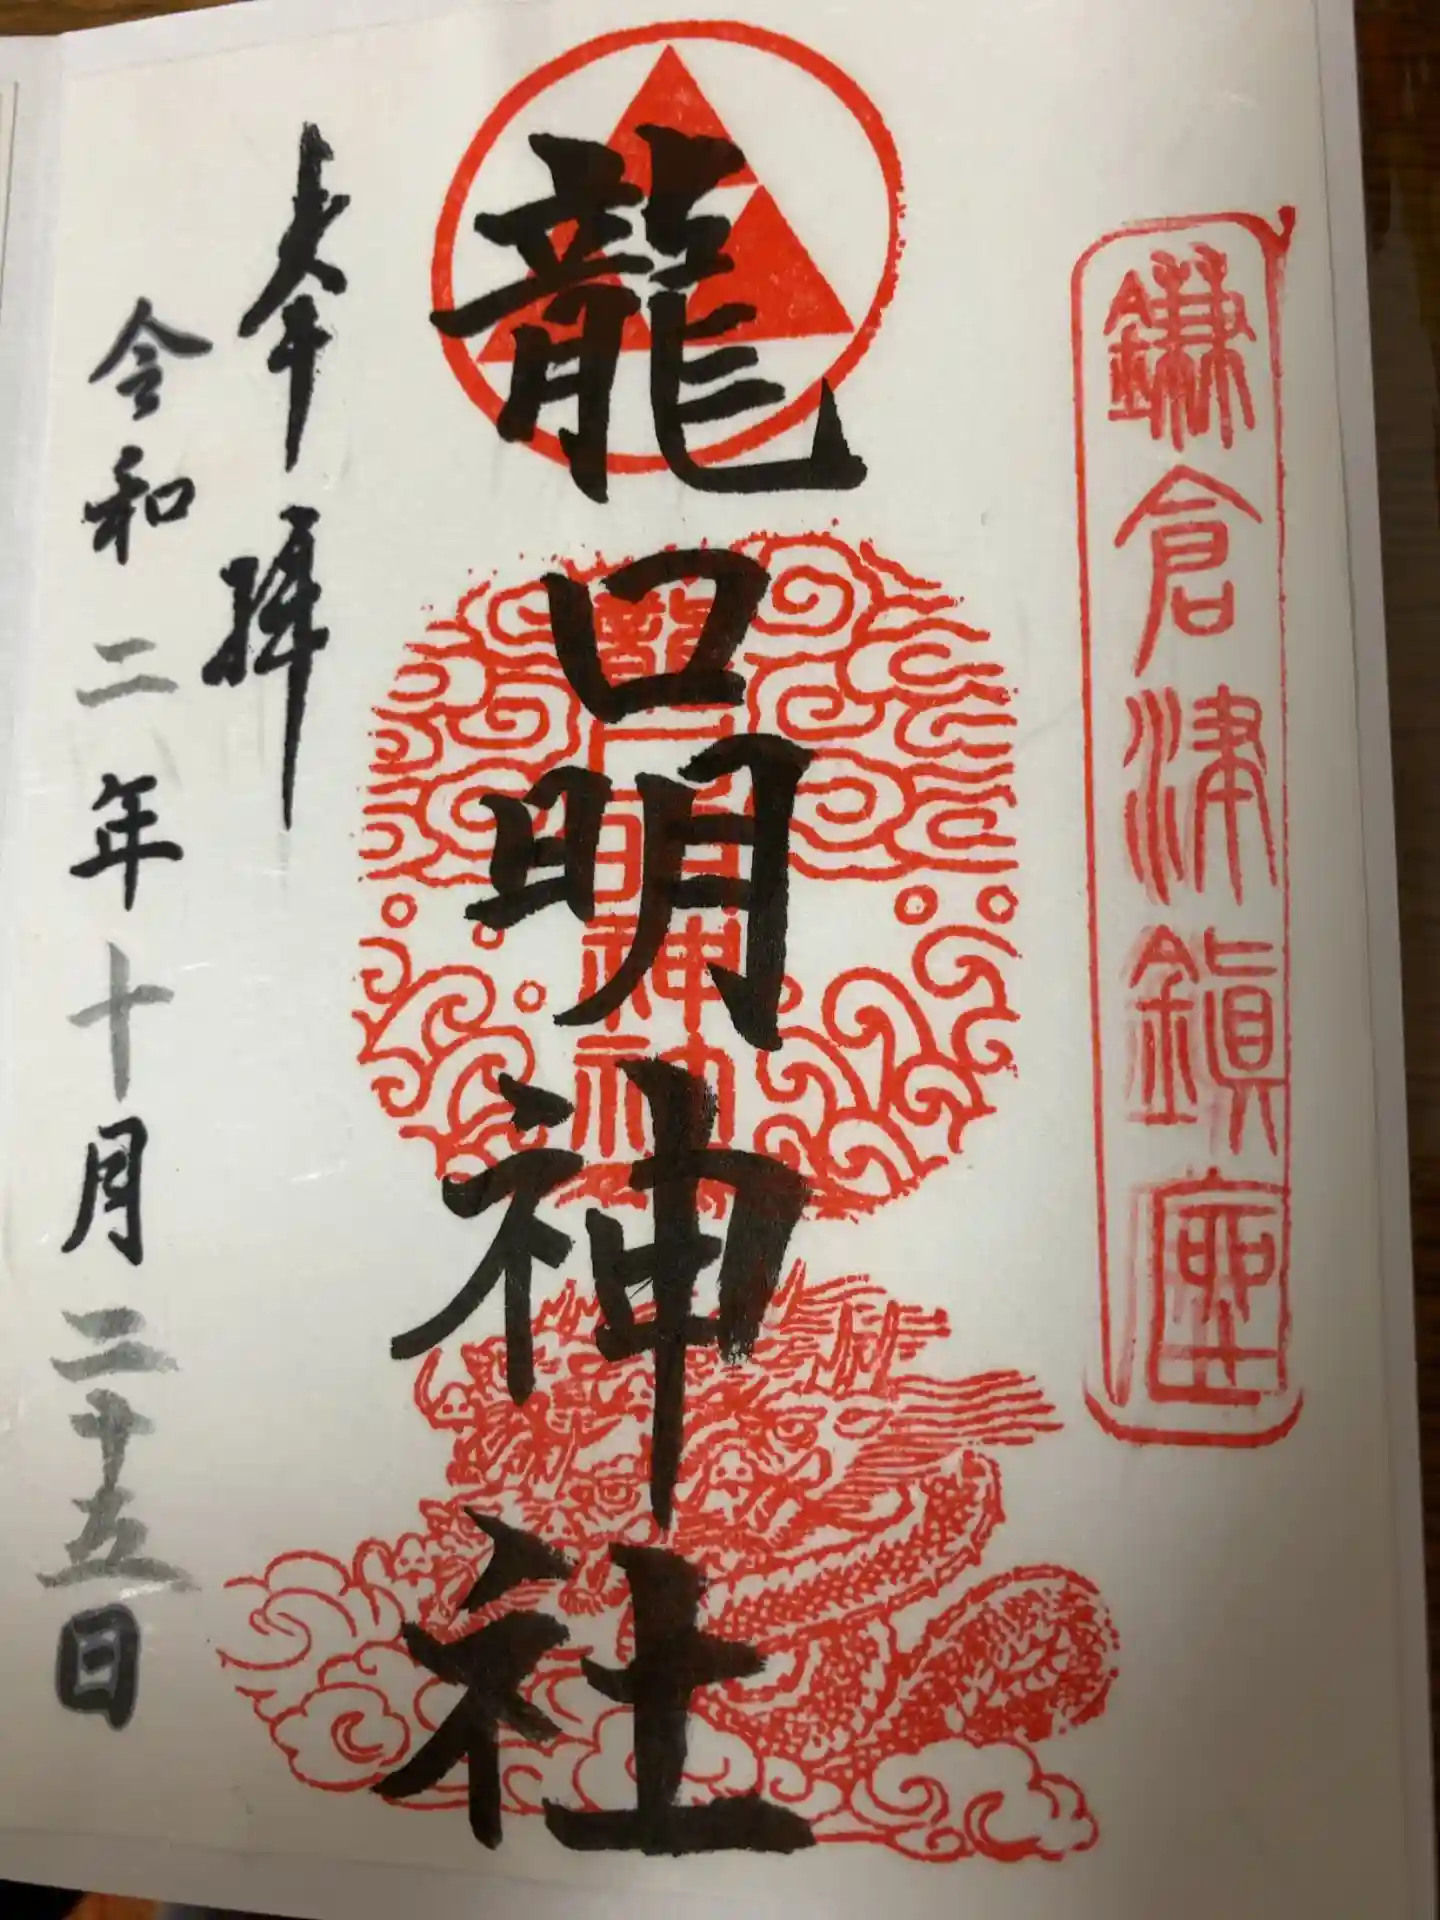 鎌倉津鎮座
龍口明神社
龍口明神社
奉拝
令和二年十月二十五日